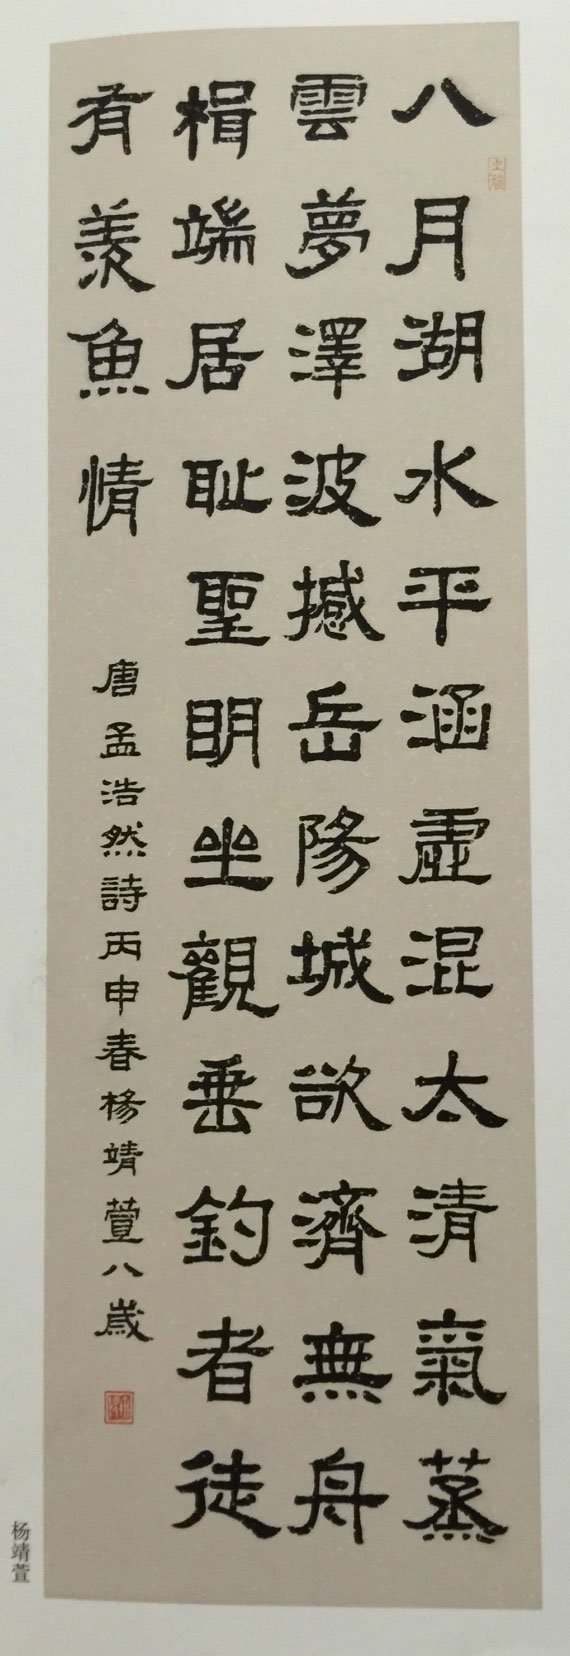 八月湖水平涵虛混太清氣蒸
雲夢澤波撼岳陽城欲濟無舟
楫端居耻聖明坐觀垂釣者徒
有羨魚情
唐孟浩然詩丙申春楊靖萱八歲
杨靖萱